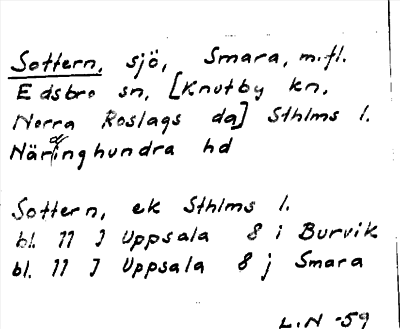 Sottern, sjö, Smara, m.fl.
Edsbro sn, [Knutby kn,
Norra Roslags da] Sthlms l.
Närdinghundra hd
Sottern, ek Sthlms l.
bl. 11 I Uppsala 8 i Burvik
bl. 11 I Uppsala 8 j Smara
L.N -59